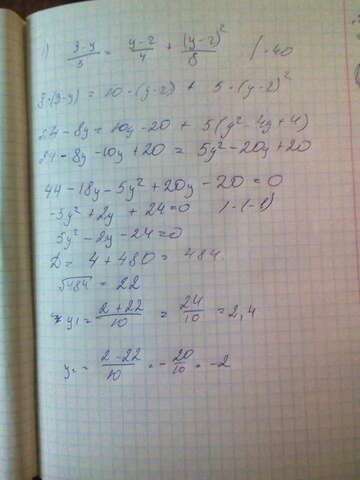 1) (3-y)/5 = (y-2)/4 + (y-2)²/8 / · 40
8·(3-y) = 10·(y-2) + 5·(y-2)²
24 - 8y = 10y - 20 + 5(y² - 4y + 4)
24 - 8y - 10y + 20 = 5y² - 20y + 20
44 - 18y - 5y² + 20y - 20 = 0
-5y² + 2y + 24 = 0 / · (-1)
5y² - 2y - 24 = 0
D = 4 + 480 = 484
√484 = 22
y₁ = (2+22)/10 = 24/10 = 2,4
y₂ = (2-22)/10 = -20/10 = -2